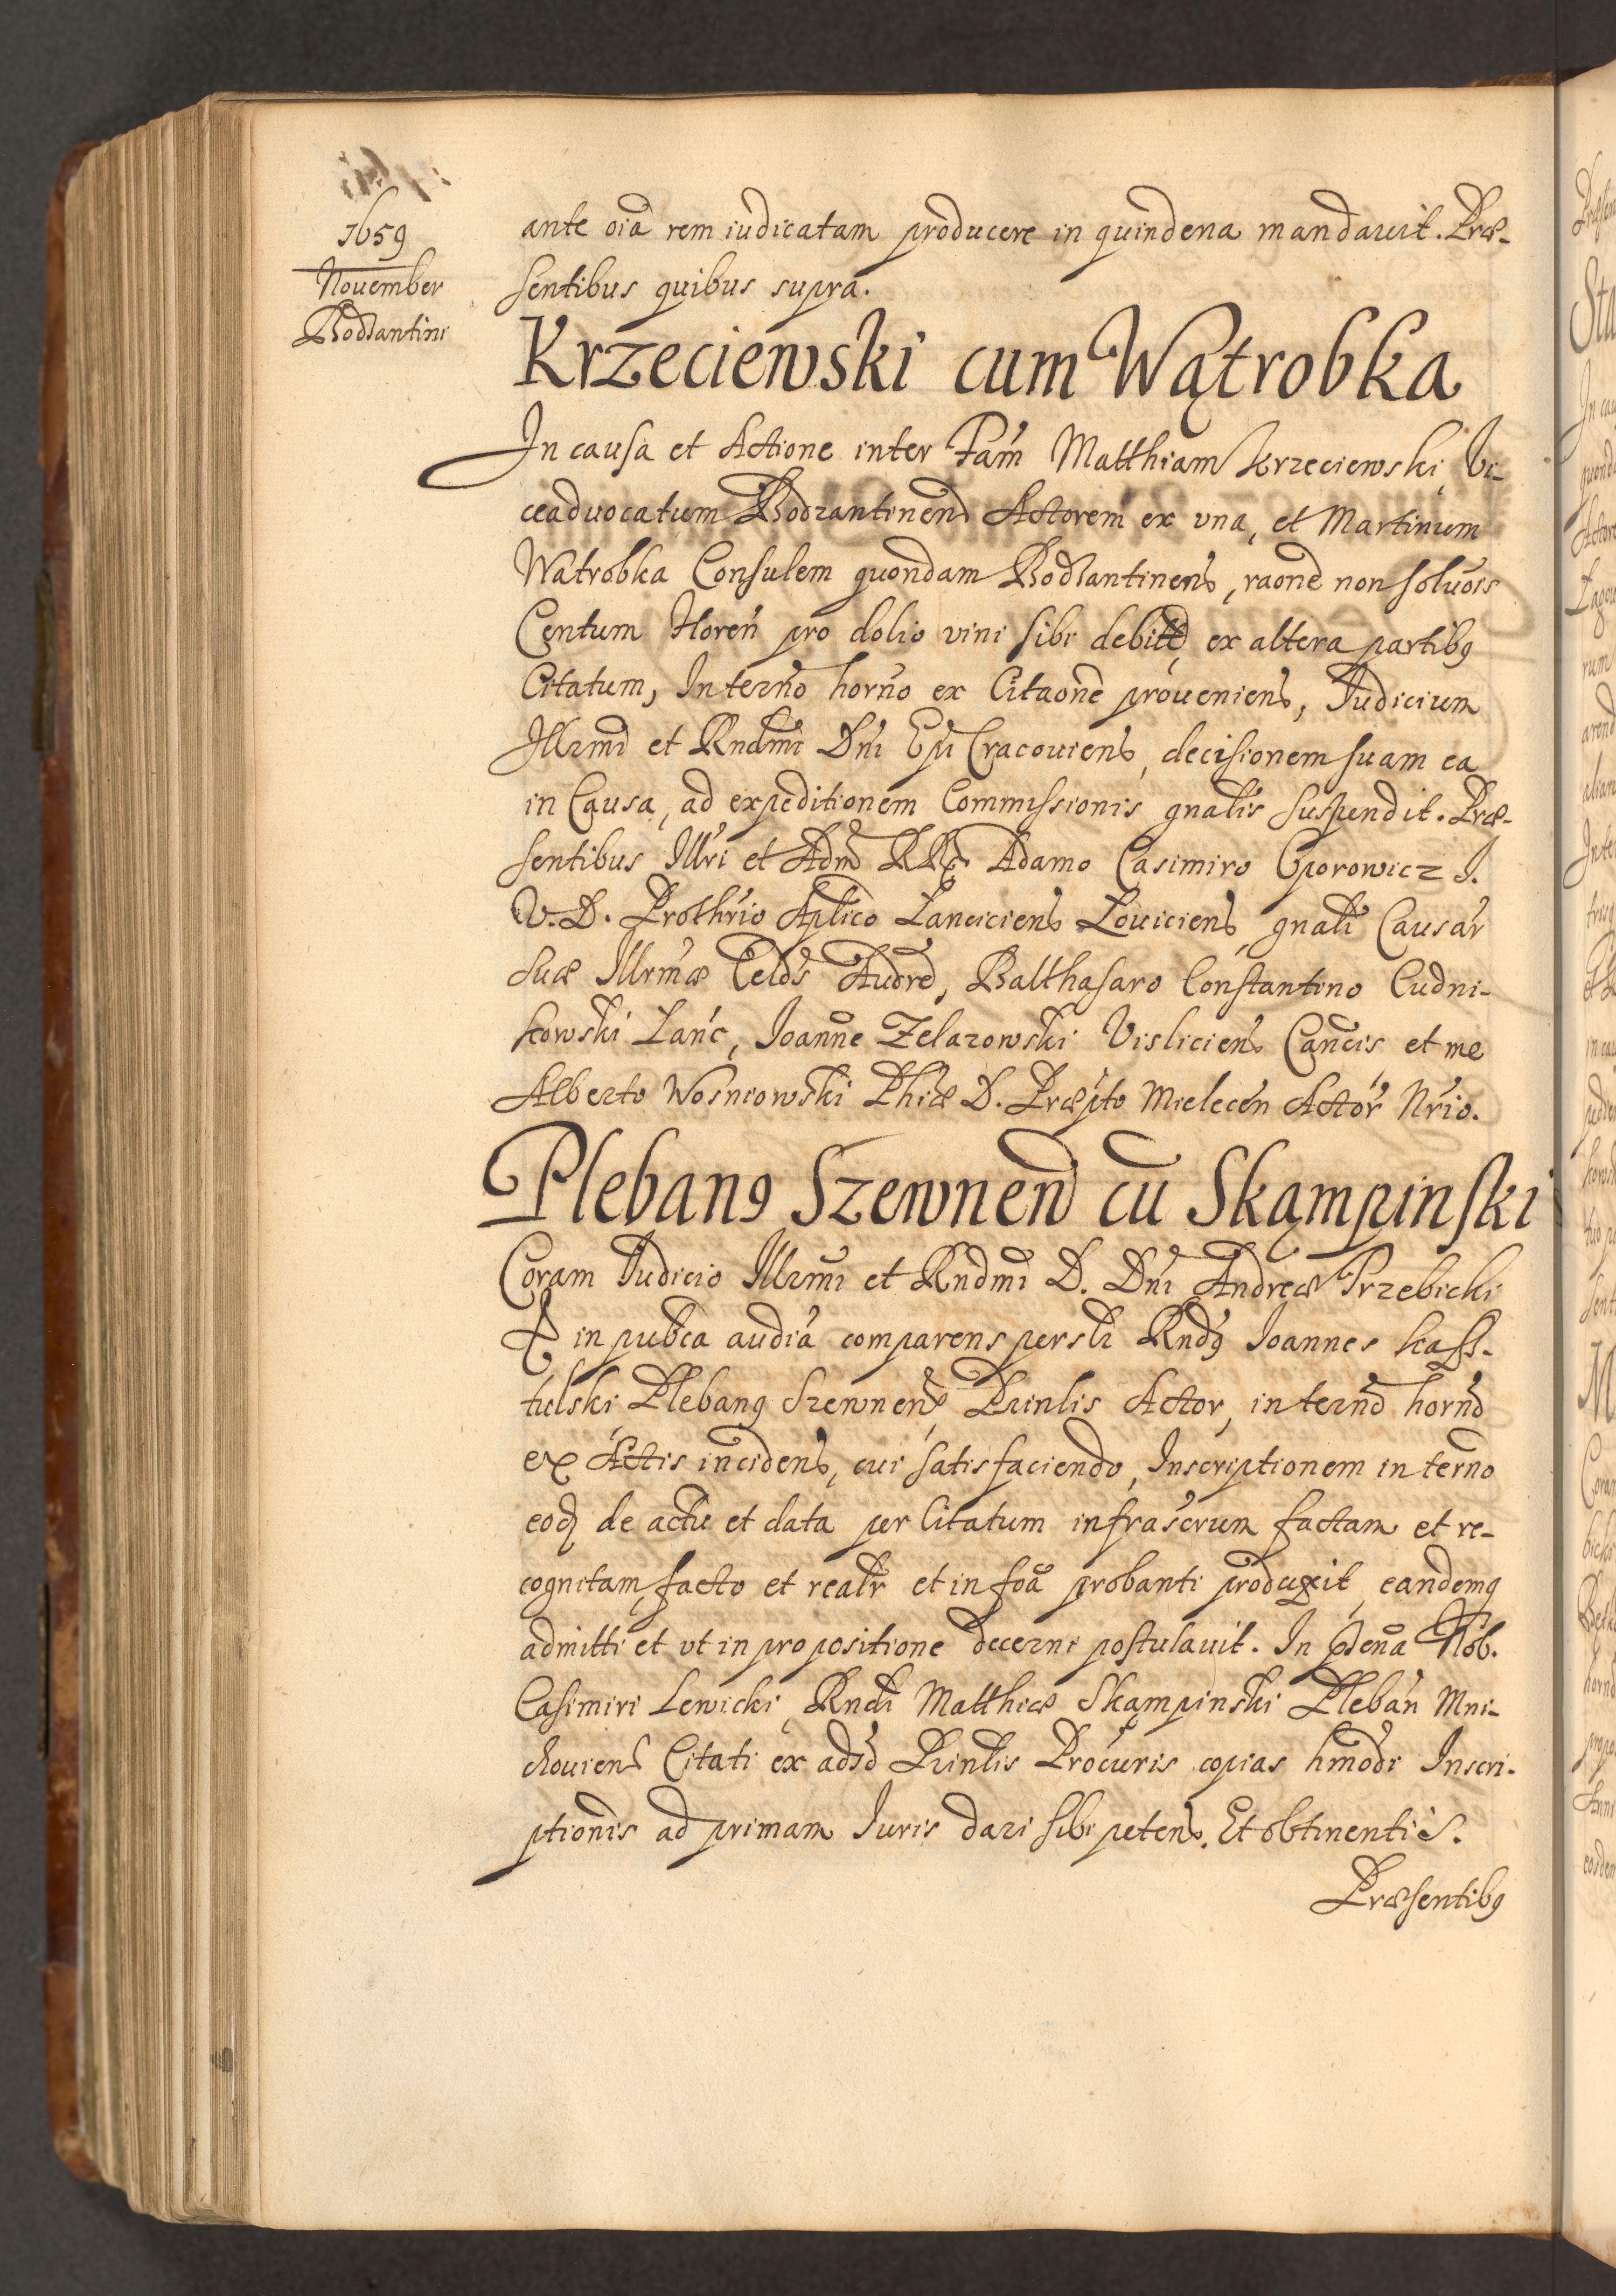 1659
November
Bodzantini
ante oīa rem iudicatam producere in quindena mandauit. Præ-
sentibus quibus supra.
Krzeciewski cum Wątrobka
In causa et Actione inter Fam̃ Matthiam Krzeciewski, Vi-
ceaduocatum Bodzantinen̄ Actorem ex vna, et Martinum
Wątrobka Consulem quondam Bodzantinens, raōne non solūois
Centum floreñ pro dolio vini sibi debit ex altera partibꝯ
Citatum, In termo horno ex Citaōne proueniens, Iudicium
Illrmi et Rndmi Dn̄i Ep̄i Cracouiens, decisionem suam ea
in Causa, ad expeditionem Commissionis gn̄alis suspendit. Præ-
sentibus Illri et Adm̄ RR Adamo Casimiro Oporowicz I.
V. D. Prothrio Aplico Lanciciens Louiciens, gn̄ali Causar̄
suæ Illrmæ Celd̄s Audre, Balthasaro Constantino Cudni-
kowski Lanc̄, Ioanne Zelazowski Visliciens Can̄cis et me
Alberto Wosniowski Phiæ D. Præpto Mielecen̄ Actor̄ Nr̄io.
Plebanꝯ Szewnen̄ cū Skąmpinski
Coram Iudicio Illrmi et Rndmi D. Dn̄i Andreæ Trzebicki
E in pub̄ca audiā comparens persl̄i Rndꝯ Ioannes Kass-
tulski Plebanꝯ Szewnens Prinlis Actor, in termo horno
ex Actis incidens, cui satisfaciendo, Inscriptionem in termo
eoq de actu et data per Citatum infrascrum factam et re-
cognitam, facto et real̄r et in foā probanti produxit, eandemq
admitti et vt in propositione decerni postulauit. In p̄dena Nob.
Casimiri Lewicki, Rndi Matthiæ Skąmpinski Pleban̄ Mni-
chouiens Citati ex adso Prinlis Procuris copias hmodi Inscri-
ptionis ad primam Iuris dari sibi petens. Et obtinentis.
Præsentibꝯ